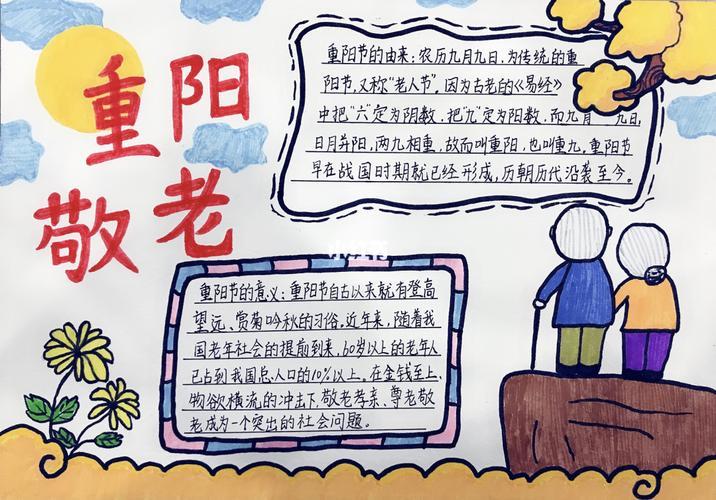 重阳
敬老
重阳节的由来：农历九月九日，为传统的重
阳节，又称“老人节”，因为古老的《易经》
中把“六”定为阴数，把“九”定为阳数，而九月 九日，
日月并阳，两九相重，故而叫重阳，也叫重九，重阳节
早在战国时期就已经形成，历朝历代沿袭至今。
小红书
重阳节的意义：重阳节自古以来就有登高
望远、赏菊吟秋的习俗，近年来，随着我
国老年社会的提前到来，60岁以上的老年人
已占到我国总人口的10%以上，在金钱至上、
物欲横流的冲击下，敬老孝亲、尊老敬
老成为一个突出的社会问题。